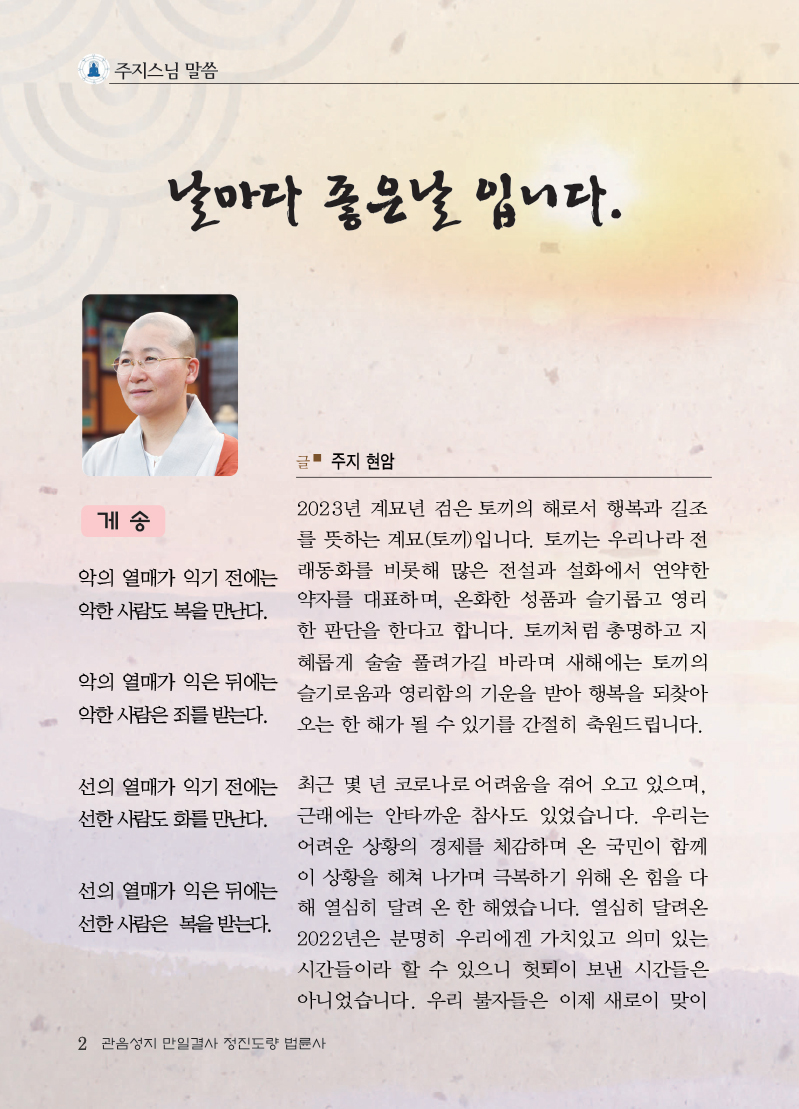 주지스님 말씀
날마다 좋은날 입니다.
글■ 주지 현암
게 송
악의 열매가 익기 전에는
악한 사람도 복을 만난다.
악의 열매가 익은 뒤에는
악한 사람은 죄를 받는다.
선의 열매가 익기 전에는
선한 사람도 화를 만난다.
선의 열매가 익은 뒤에는
선한 사람은 복을 받는다.
2023년 계묘년 검은 토끼의 해로서 행복과 길조
를 뜻하는 계묘(토끼)입니다. 토끼는 우리나라 전
래동화를 비롯해 많은 전설과 설화에서 연약한
약자를 대표하며, 온화한 성품과 슬기롭고 영리
한 판단을 한다고 합니다. 토끼처럼 총명하고 지
혜롭게 술술 풀려가길 바라며 새해에는 토끼의
슬기로움과 영리함의 기운을 받아 행복을 되찾아
오는 한 해가 될 수 있기를 간절히 축원드립니다.
최근 몇 년 코로나로 어려움을 겪어 오고 있으며,
근래에는 안타까운 참사도 있었습니다. 우리는
어려운 상황의 경제를 체감하며 온 국민이 함께
이 상황을 헤쳐 나가며 극복하기 위해 온 힘을 다
해 열심히 달려 온 한 해였습니다. 열심히 달려온
2022년은 분명히 우리에겐 가치있고 의미 있는
시간들이라 할 수 있으니 헛되이 보낸 시간들은
아니었습니다. 우리 불자들은 이제 새로이 맞이
2 관음성지 만일결사 정진도량 법륜사